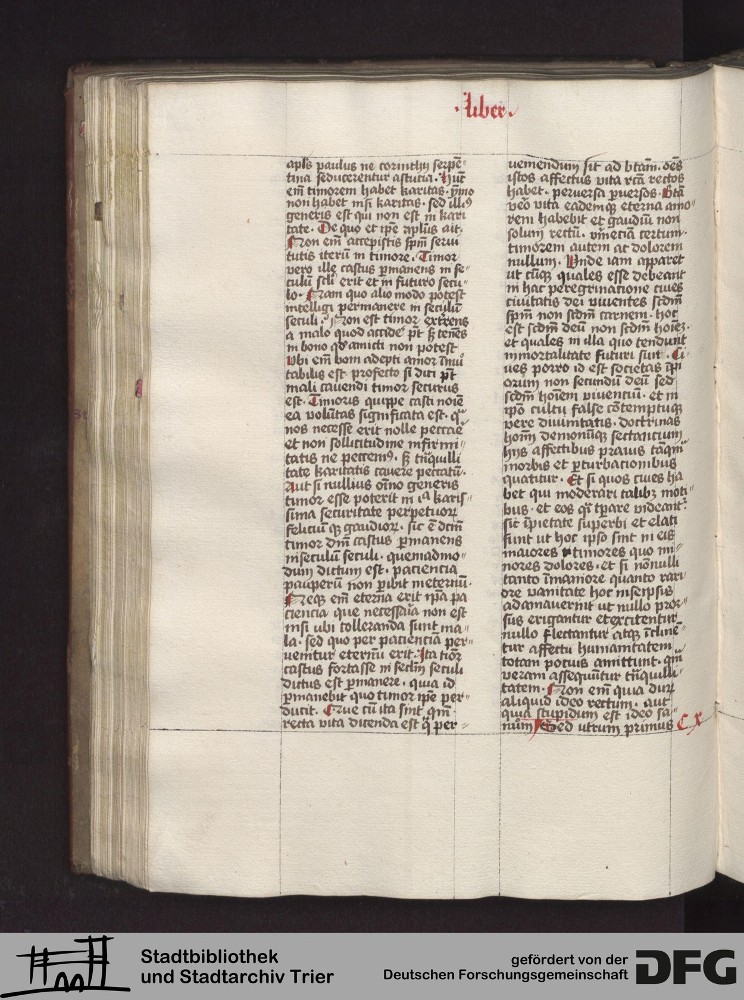 ·liber·
apls paulus ne corinthij serpē-
tina seducerentur astutia. Hūc
em̄ timorem habet karitas. ymo
non habet nisi karitas. sed illi9
generis est qui non est in kari
tate. De quo et ipe aplus ait.
Non em̄ accepistis spm̄ servi
tutis iterū in timore. Timor
vero ille castus permanens in se-
culū scli erit et in futuro secu-
lo. Nam quo alio modo potest
intelligi permanere in seculū
seculi. Non est timor exterrens
a malo quod accide p̄t sꝫ tenēs
in bono qd amicti non potest
Vbi em̄ boni adepti amor īmu
tabilis est profecto si dici p̄t
mali cavendi timor securus
est. Timoris quippe casti noīe
ea volūtas significata est. qᵃ
nos necesse erit nolle peccare
et non sollicitudine infirmi-
tatis ne peccem9. sꝫ tnqͥlli
tate karitatis cavere peccatū.
Aut si nullius oīno generis
timor esse poterit in ita karis-
sima securitate perpetuorꝝ
feliciūqꝫ gaudiorꝝ. sic ē dcm̄
timor dnī castus permanens
in seculū seculi. quemadmo-
dum dictum est. paciencia
pauperū non pibit in eternū.
Neqꝫ em̄ eterna erit ipa pa
ciencia que necessaria non est
nisi ubi tolleranda sunt ma-
la. sed quo per paciencia per-
venitur eternū erit. Ita timor
castus fortasse in seclm̄ seculi
dictus est pmanere. quia id
pmanebit quo timor ipe per-
ducit. Que cū ita sint qm̄
recta vita dicenda est qͣ per-
veniendum sit ad btām. oēs
istos affectus vita rcā rectos
habet. perversa pversos. Btā
veo vita eademqꝫ eterna amo-
rem habebit et gaudiū non
solum rectū. vmeciā certum.
timorem autem ac dolorem
nullum. Vnde iam apparet
ut cūqꝫ quales esse debeant
in hac peregrinacione cives
civitatis dei viventes scdm̄
spm̄ non scdm̄ carnem. hoc
est scdm̄ deū non scdm̄ hoīeꝫ.
et quales in illa quo tendunt
inmortalitate futuri sint. Ci-
ves porro id est societas ipi
orum non secundū deū sed
scdm̄ hoīem viventiū. et in
ipō cultu false cōtemptuqꝫ
vere divinitatis. doctrinas
hoīm demonūqꝫ sectantium
hijs affectibus pravis tāqm̄
morbis et pturbacionibus
quatitur. Et si quos cives ha
bet qui moderari talibꝫ moti-
bus. et eos qͣ tpare videant
sic īpietate superbi et elati
sunt ut hoc ipso sint in eis
maiores timores quo mi-
nores dolores. et si nōnulli
tanto īmaniore quanto rari
ore vanitate hoc in seipsis
adamaverint ut nullo pror-
sus erigantur et excitentur
nullo flectantur atqꝫ īcline-
tur affectu humanitatem
totam pocius amittunt. qm̄
veram assequūtur tnqͥlli-
tatem. Non em̄ quia durꝝ
aliquid ideo rectum. aut
quia stupidum est ideo sa-
num Sed utrum primus C x
Stadtbibliothek
und Stadtarchiv Trier
gefördert von der
Deutschen Forschungsgemeinschaft
DFG